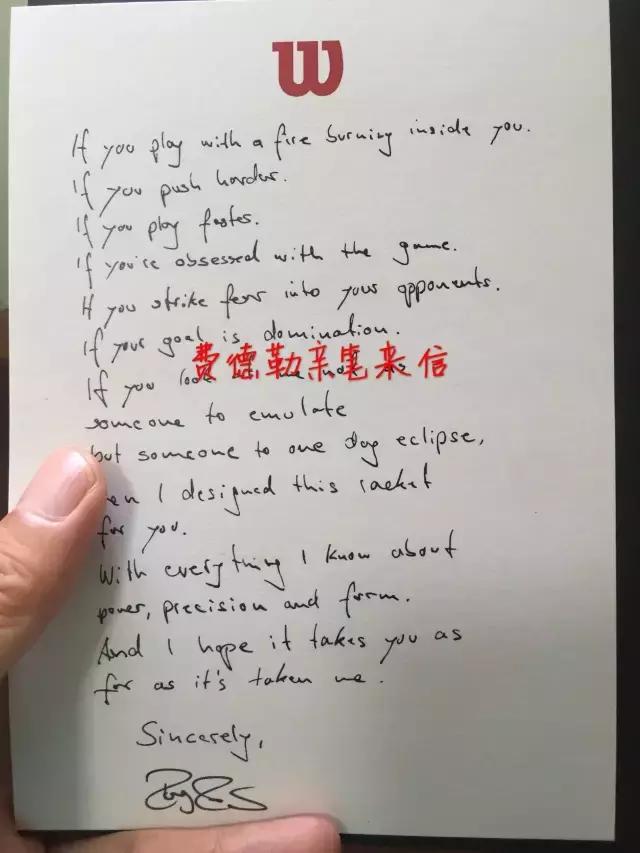 W
If you play with a fire burning inside you.
If you push harder.
If you play faster.
If you're obsessed with the game.
If you strike fear into your opponents.
If your goal is domination.
费德勒亲笔来信
If you look as
someone to emulate
but someone to one day eclipse,
I designed this racket
for you.
With everything I know about
power, precision and form.
And I hope it takes you as
far as it's taken me.
Sincerely,